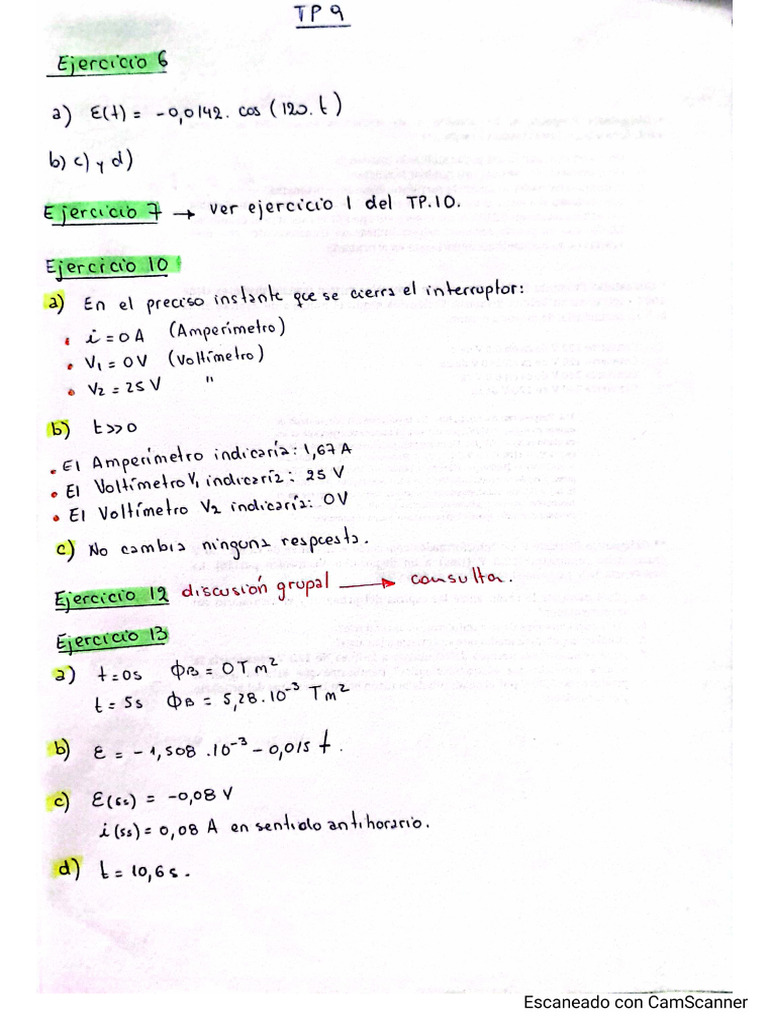 TP 9
Ejercicio 6
a) ε(t) = -0,0142. cos (120. t)
b) c) y d)
Ejercicio 7 → ver ejercicio 1 del TP.10.
Ejercicio 10
a) En el preciso instante que se cierra el interruptor:
• i = 0 A (Amperímetro)
• V1 = 0V (Voltímetro)
• V2 = 25 V "
b) t>>0
• El Amperímetro indicaría: 1,67 A
• El Voltímetro V1 indicaría: 25 V
• El Voltímetro V2 indicaría: 0V
c) No cambia ninguna respuesta.
Ejercicio 12 discusión grupal → consultar.
Ejercicio 13
a) t=0s ΦB = 0 T m²
t = 5s ΦB = 5,28.10⁻³ T m²
b) ε = -1,508 .10⁻³ - 0,015 t.
c) ε(5s) = -0,08 V
i(5s) = 0,08 A en sentido antihorario.
d) t = 10,6 s.
Escaneado con CamScanner